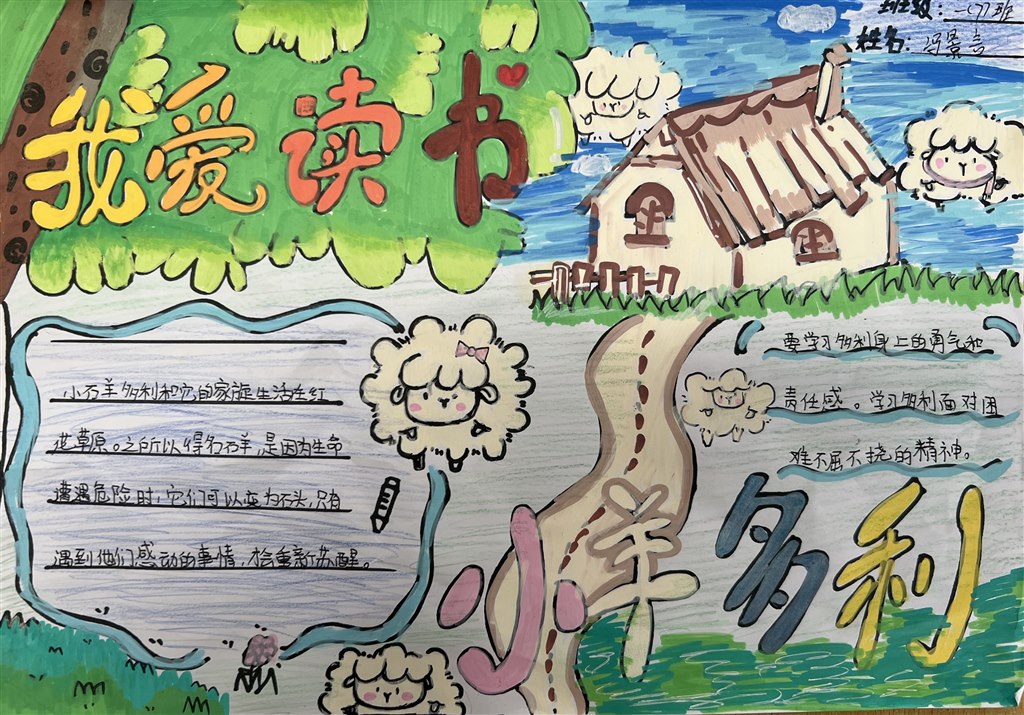 我爱读书
班级：一（7）班
姓名：冯景言
小石羊多利和它的家族生活在红
花草原。之所以得名石羊，是因为生命
遭遇危险时，它们可以变为石头，只有
遇到他们感动的事情，才会重新苏醒。
要学习多利身上的勇气和
责任感。学习多利面对困
难不屈不挠的精神。
小羊多利